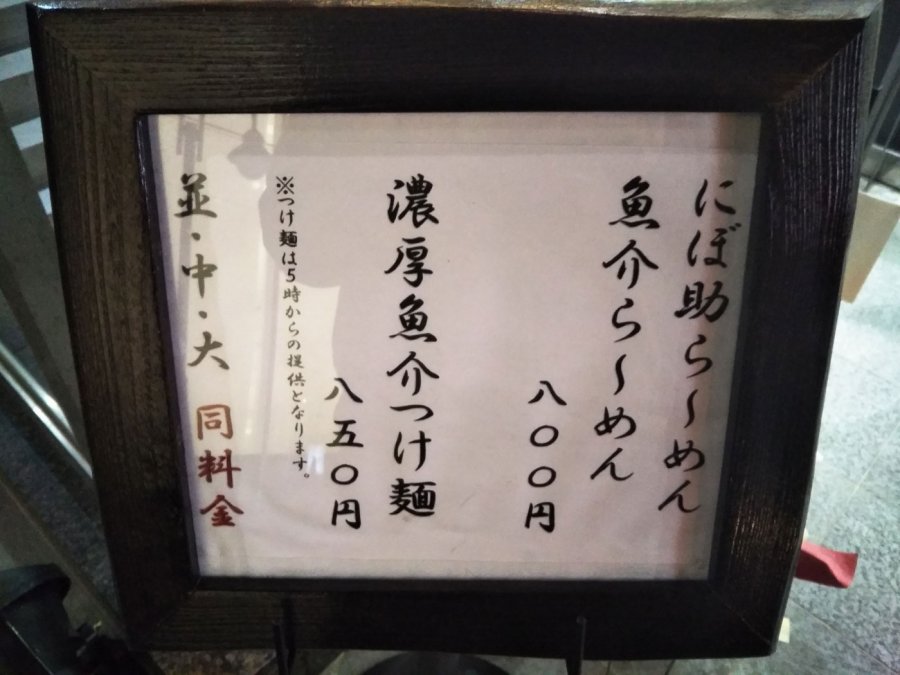 にぼ助ら〜めん
魚介ら〜めん
八〇〇円
濃厚魚介つけ麺
八五〇円
※つけ麺は5時からの提供となります。
並・中・大 同料金